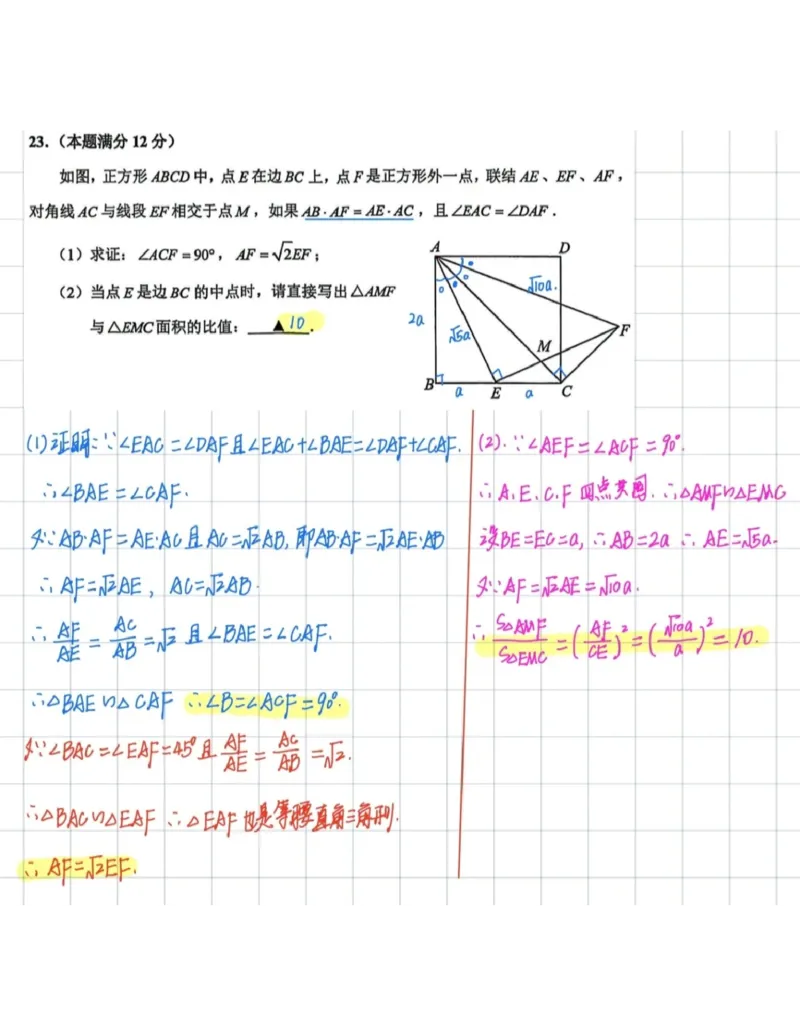 23.（本题满分 12 分）
如图，正方形 ABCD 中，点 E 在边 BC 上，点 F 是正方形外一点，联结 AE、EF、AF，
对角线 AC 与线段 EF 相交于点 M，如果 AB·AF = AE·AC，且∠EAC = ∠DAF．
（1）求证：∠ACF = 90°，AF = √2EF；
（2）当点 E 是边 BC 的中点时，请直接写出△AMF
与△EMC 面积的比值：▲10．
A D
√10a.
2a √5a F
M
B a E a C
(1) 证明：∵∠EAC=∠DAF且∠EAC+∠BAE=∠DAF+∠CAF.
∴∠BAE=∠CAF.
又∵AB·AF=AE·AC且AC=√2AB, 即AB·AF=√2AE·AB
∴AF=√2AE, AC=√2AB.
∴AF/AE=AC/AB=√2 且∠BAE=∠CAF.
∴△BAE∽△CAF ∴∠B=∠ACF=90°.
又∵∠BAC=∠EAF=45°且AF/AE=AC/AB=√2.
∴△BAC∽△EAF ∴△EAF也是等腰直角三角形.
∴AF=√2EF.
(2).∵∠AEF=∠ACF=90°.
∴A.E.C.F四点共圆.∴△AMF∽△EMC
设BE=EC=a,∴AB=2a ∴AE=√5a.
又∵AF=√2AE=√10a.
∴S△AMF/S△EMC=(AF/CE)²=(√10a/a)²=10.